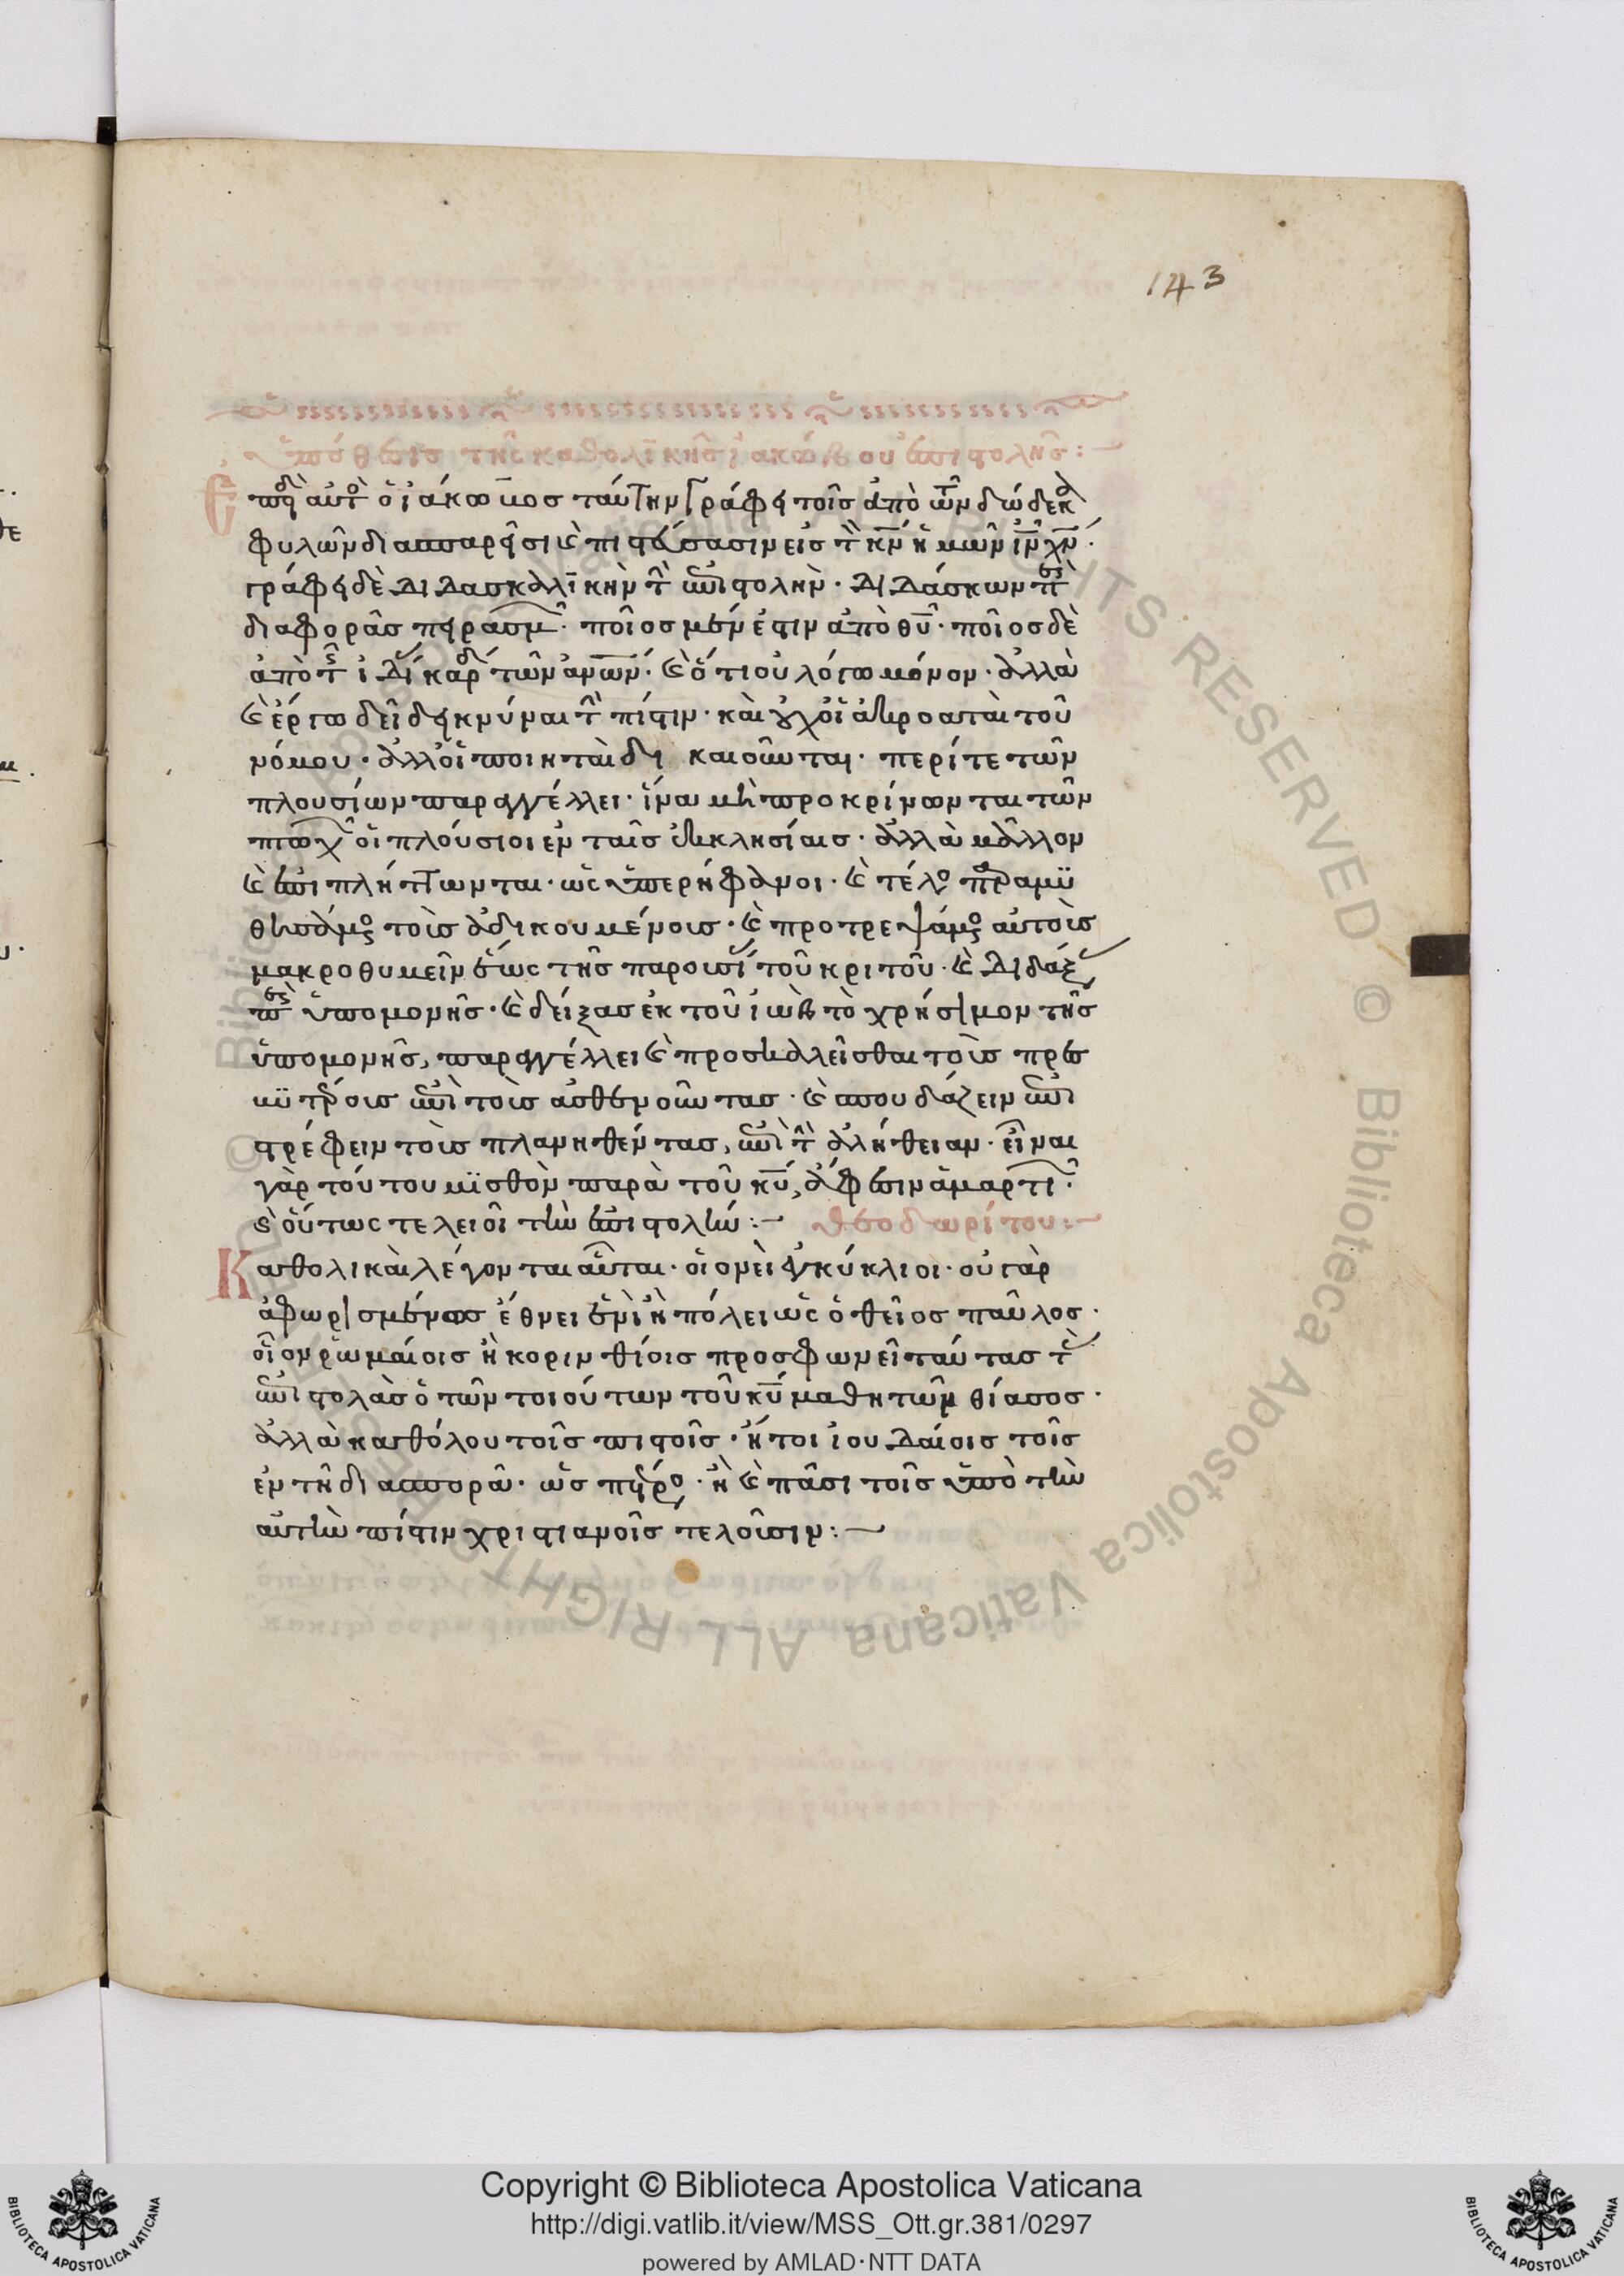 143
ὑπόθεσις τῆς καθολϊκῆς ἰακώβου ἐπιστολῆς:
Ἐπειδὴ αὐτὸς ὁ ἰάκωβος ταύτην γράφει τοῖς ἀπὸ τῶν δώδεκα
φυλῶν διασπαρεῖσι καὶ πιστεύσασιν εἰς τὸν κν ἡμῶν ιν χν.
γράφει δὲ διδασκαλϊκὴν τὴν ἐπιστολὴν. διδάσκων περὶ
διαφορᾶς πειρασμῶν. ποῖος μέν ἐστιν ἀπὸ θυ. ποῖος δὲ
ἀπὸ τῆς ἰδίας καρδίας τῶν ἀνων. καὶ ὅτι οὐ λόγω μόνον. ἀλλὰ
καὶ ἔργω δεῖ δεικνύναι τὴν πίστιν. καὶ οὐχ οἱ ἀκροαταὶ τοῦ
νόμου. ἀλλ' οἱ ποιηταὶ δικαιοῦνται. περί τε τῶν
πλουσίων παραγγέλλει. ἵνα μὴ προκρίνωνται τῶν
πτωχῶν οἱ πλούσιοι ἐν ταῖς ἐκκλησίαις. ἀλλὰ μᾶλλον
καὶ ἐπιπλήττωνται. ὡς ὑπερήφανοι. καὶ τέλος παραμϋ
θησάμενος τοὺς ἀδικουμένους. καὶ προτρεψάμενος αὐτοὺς
μακροθυμεῖν ἕως τῆς παρουσίας τοῦ κριτοῦ. καὶ διδάξας
περὶ ὑπομονῆς. καὶ δείξας ἐκ τοῦ ἰὼβ τὸ χρήσιμον τῆς
ὑπομονῆς, παραγγέλλει καὶ προσκαλεῖσθαι τοὺς πρεσ
βϋτέρους ἐπὶ τοὺς ἀσθενοῦντας. καὶ σπουδάζειν ἐπι
στρέφειν τοὺς πλανηθέντας, ἐπὶ τὴν ἀλήθειαν. εἶναι
γὰρ τούτου μϊσθὸν παρὰ τοῦ κυ, ἄφεσιν ἁμαρτιῶν.
καὶ οὕτως τελειοῖ τὴν ἐπιστολήν:— θεοδωρίτου:—
Καθολικαὶ λέγονται αὗται. οἱονεὶ ἐγκύκλιοι. οὐ γὰρ
ἀφωρισμένως ἔθνει ἑνὶ ἢ πόλει ὡς ὁ θεῖος παῦλος.
οἷον ῥωμαίοις ἢ κορινθίοις προσφωνεῖ ταύτας τὰς
ἐπιστολὰς ὁ τῶν τοιούτων τοῦ κυ μαθητῶν θίασος.
ἀλλὰ καθόλου τοῖς πιστοῖς. ἤτοι ἰουδαίοις τοῖς
ἐν τῆ διασπορᾶ. ὡς πέτρος. ἢ καὶ πᾶσι τοῖς ὑπὸ τὴν
αὐτὴν πίστιν χριστιανοῖς τελοῦσιν:—
Copyright © Biblioteca Apostolica Vaticana
http://digi.vatlib.it/view/MSS_Ott.gr.381/0297
powered by AMLAD·NTT DATA